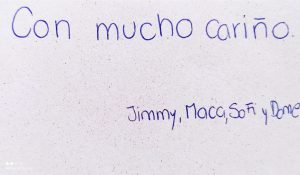 Con mucho cariño.
Jimmy, Maca, Sofi y Dome